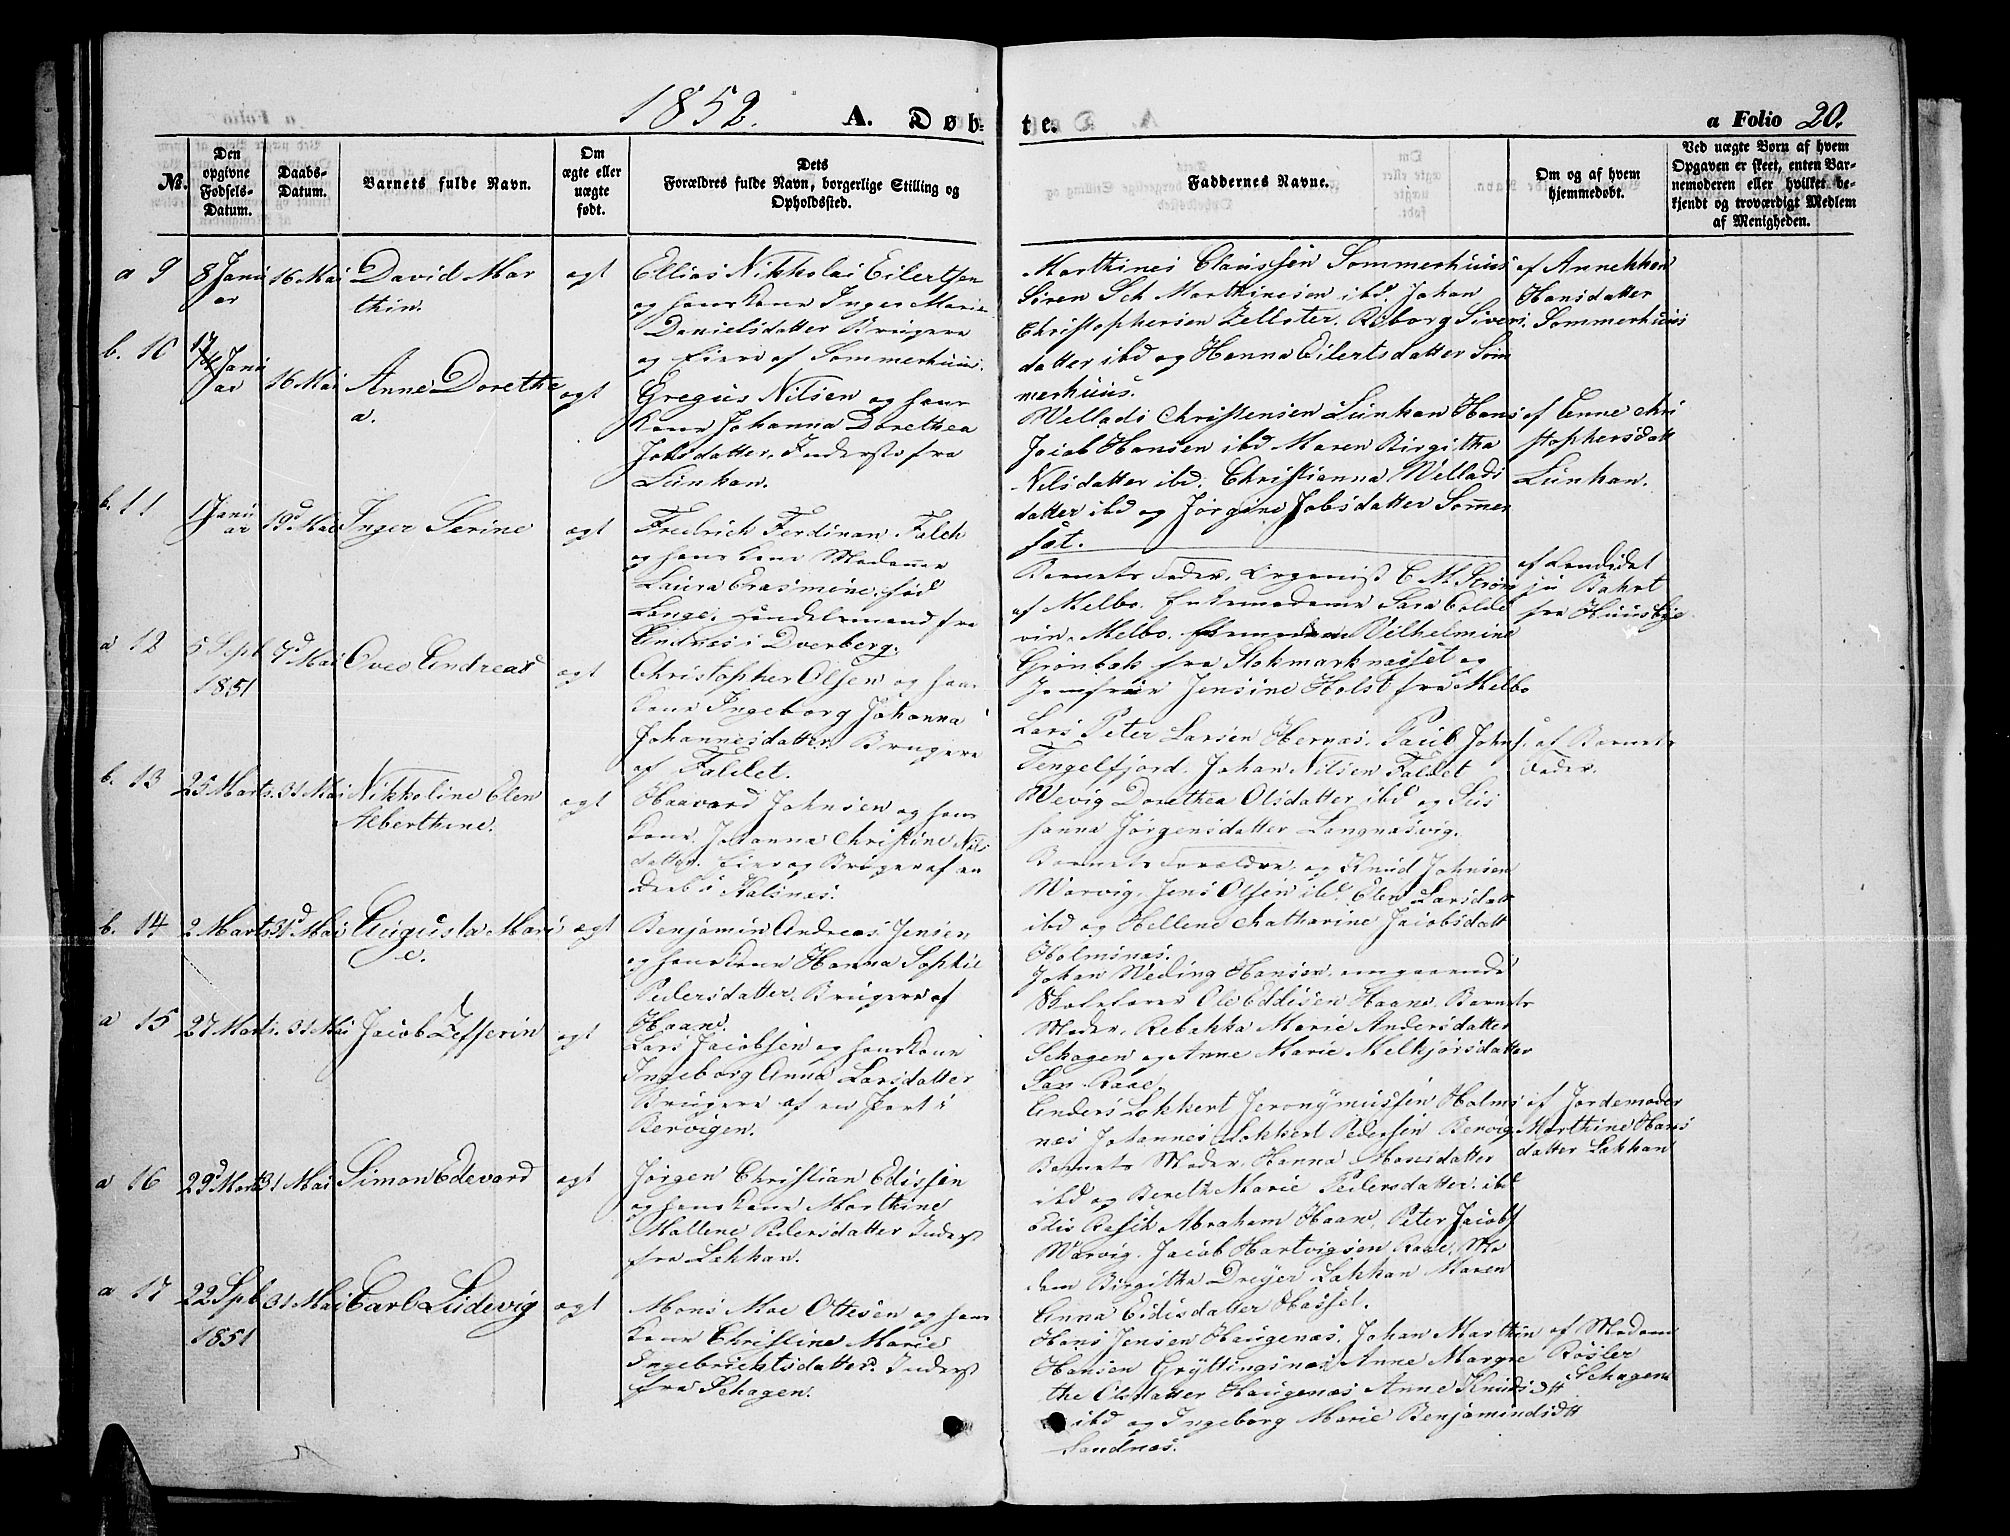 1852.
A. Døb-
te.
a Folio 20.
No.
Den opgivne Fødsels-Datum.
Daabs-Datum.
Barnets fulde Navn.
Om ægte eller uægte født.
Dets Forældres fulde Navn, borgerlige Stilling og Opholdssted.
Faddernes Navne.
Om og af hvem hjemmedøbt.
Ved uægte Børn af hvem Opgaven er skeet, enten Barnemoderen eller hvilket bekjendt og troværdigt Medlem af Menigheden.
a 9
8 Janu
ar
16 Mai
David Mar
thin.
ægt
Ellias Nikkolai Eilertsen
og hans Kone Inger Marie
Danielsdatter Brugere
og Eiere af Sommerhuus.
Marthines Claussen Sommerhuus
Søren Sch Marthinesen ibd. Johan
Christophersen Zelloter. Roborg Sivers
datter ibd og Hanna Eilertsdatter Som
merhuus.
af Annekken
Hansdatter
Sommerhuus
b. 10
Janu
ar
16 Mai
Anne Dorethe
a.
ægt
Gregus Nilsen og hans
Kone Johanna Dorethea
Jobsdatter, Inderste fra
Lunkan.
Wellads Christensen Lunkan Hans
Jacob Hansen ibd Maren Birgitha
Nilsdatter ibd. Christianna Wellads
datter ibd og Jørgine Jobsdatter Sommer
sæt.
af Anne Chri
stophersdatt
Lunkan.
b. 11
1 Janu
ar
19d Mai
Inger Serine
ægt
Fredrich Ferdinan Falch
og hans Kone Madamme
Laura Erasmine, fød
Lange, Handelsmand fra
Andnæs i Dverberg.
Barnets Fader, Organist C M Strøm
af Melbo. Enkemadame Sara Colde
vin. Melbo. Wilhelmine
Grønbek fra Stokmarknæsset og
Jomfrue Jensine Holst fra Melbo
af Candidat
jur Bakot
fra Huusbye
a 12
5 Sept
1851
9d Mai
Oveo Andreas
ægt
Christopher Olsen og hans
Kone Ingeborg Johanna
Johannesdatter Brugere
af Faldet.
Lars Peter Larsen Hernæs. Paul Johns.
Tengelfjord. Johan Nilsen Faldet
Wevig Dorethea Olsdatter ibd og Sus
hanna Jørgensdatter Langnæsvig.
af Barnets
Fader.
b. 13
25 Marts.
31 Mai
Nikkoline Elen
Alberthine.
ægt
Haavard Johnsen og hans
Kone Johanna Christine Nils
datter. Eier og Bruger af en
Deel i Kalsnæs.
Barnets Forældre, og Knud Johnsen
Warvig, Jens Olsen ibd. Elen Larsdatt
ibd og Hellene Katharine Jacobsdatt
Holmsnæs.
b. 14
2 Marts
31d Mai
Augusta Mari
e.
ægt
Benjamin Andreas Jensen
og hans Kone Hanna Sophie
Pedersdatter. Brugere af
Haan.
Johan Weding Hansen, omgaaende
Skolelærer Ole Eddisen Haan. Barnets
Moder, Rebekka Marie Andersdatter
Schagen og Anne Marie Melkjørsdatter
Raae.
a 15
27 Marts.
31 Mai
Jacob Zefferin
ægt
Lars Jacobsen og hans Kone
Ingeborg Anna Larsdatter
Brugere af en Part i
Bervigen.
Anders Lokkert Jeronymussen Holms
nes Johannes Lokkert Pedersen Bervig
Barnets Moder. Hanna Monsdatter
ibd og Bereth Marie Pedersdatter ibd
af Jordemoder
Marthine Hans
datter Løkkan
a 16
29d Marts
31 Mai
Simon Edevard
ægt
Jørgen Christian Edissen
og hans Kone Marthine
Mallene Pedersdatter Inderst
fra Løkkan.
Edis Rasch Abraham Haan, Peter Jacobs
Warvig. Jacob Hartvigsen Raae. Ma
dam Birgitha Dreyer Løkkan Maren
Anna Eidisdatter Hassel.
a 17
22 Spb
1851
31 Mai
Carl Ludevig
ægt
Mons Moe Ottesen og hans
Kone Christine Marie
Ingebrichtsdatter. Inderst
fra Schagen.
Hans Jensen Haugenæs, Johan Marthin
Hansen Gryttingsnæs Anne Margre
the Olsdatter Haugenæs Anne Knudsdtt
ibd og Ingeborg Marie Benjamindsdtt
Sandnæs.
af Madam
Røsler
Schagen